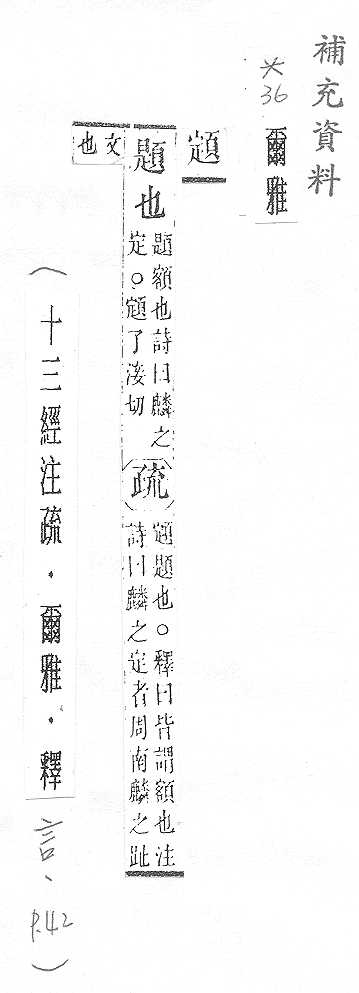 補充資料
36
爾雅
顁
題也
題額也詩曰麟之
定○顁丁切
(疏)
顁題也○釋曰皆謂額也注
詩曰麟之定者周南麟之趾
文
也
（十三經注疏．爾雅．釋言、P.42）